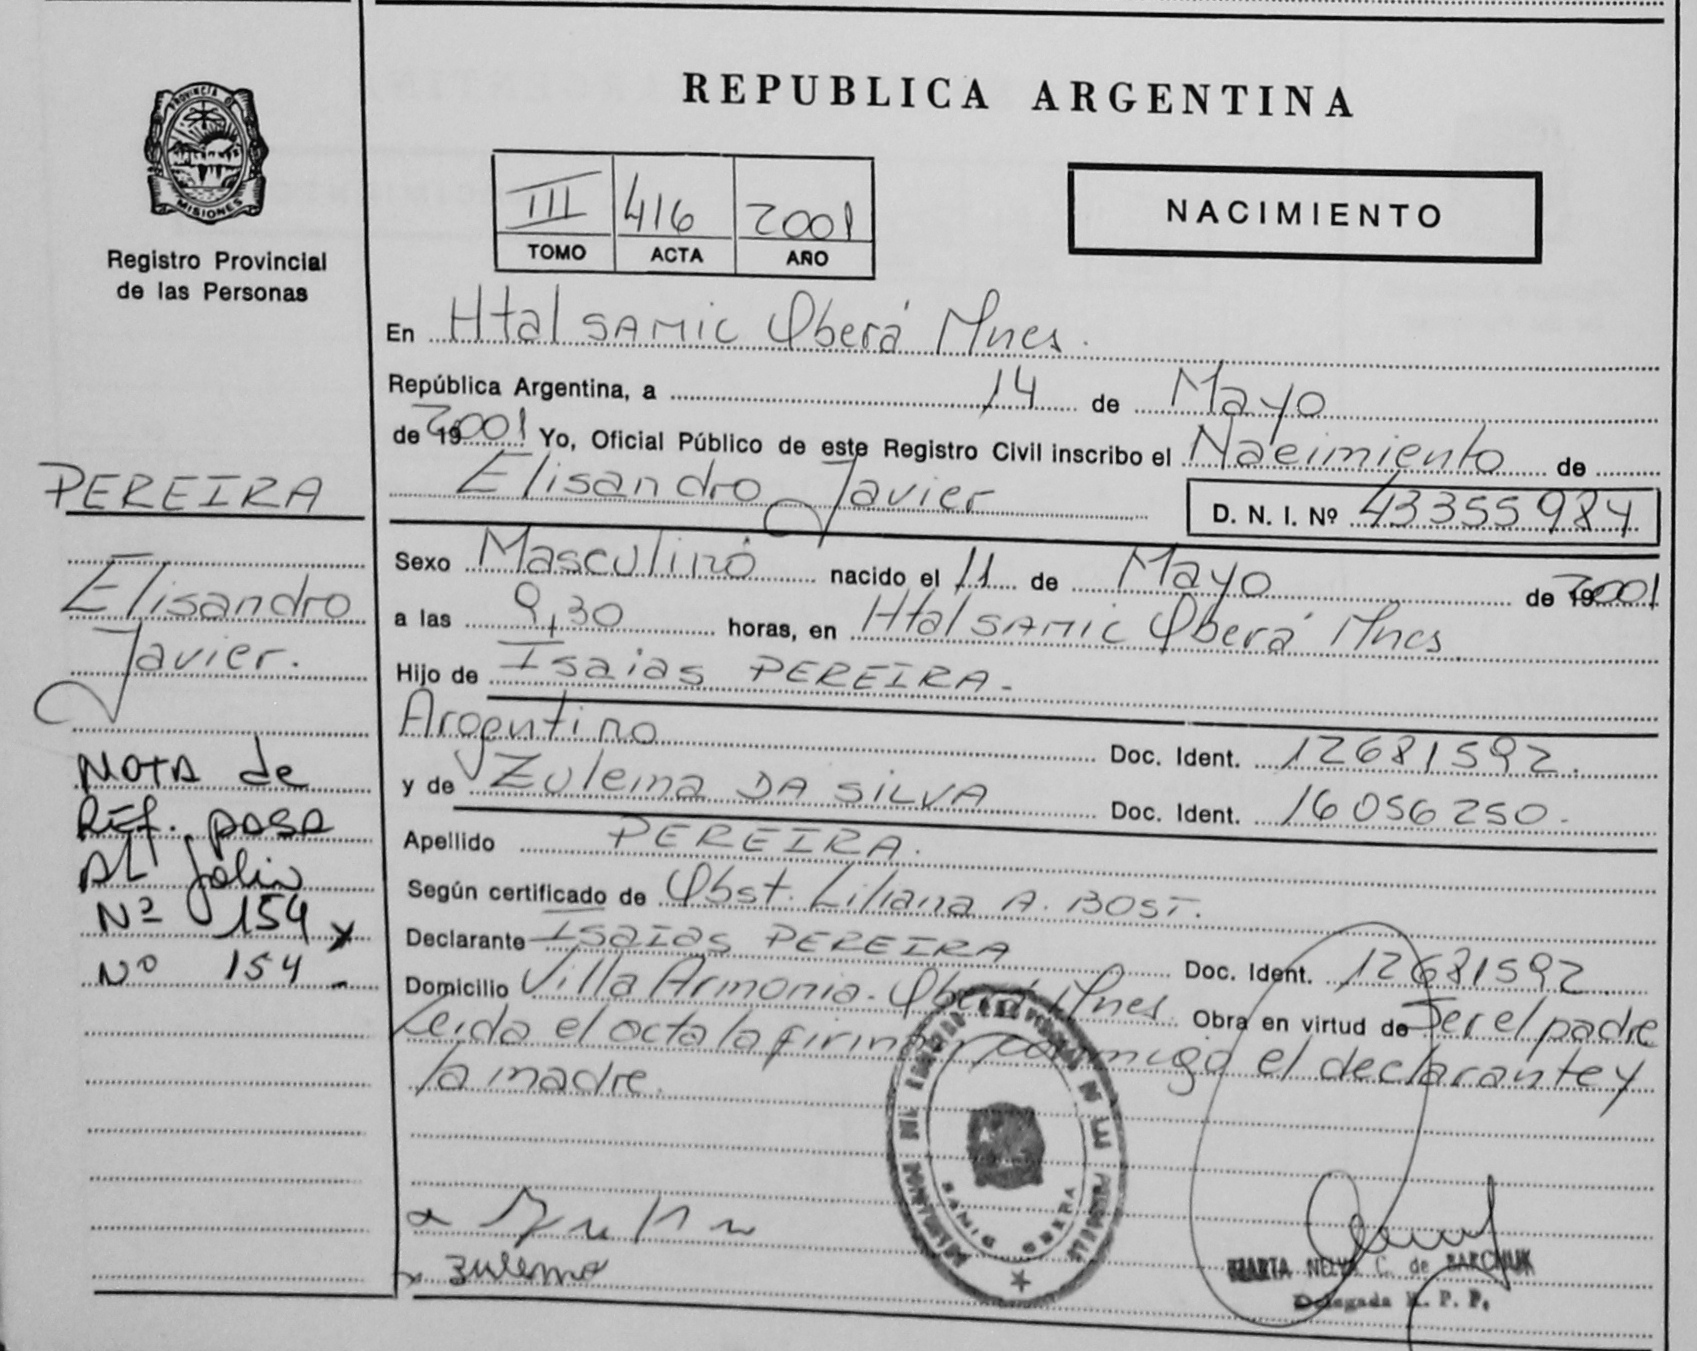 PROVINCIA D
MISIONES
Registro Provincial
de las Personas
PEREIRA
Elisandro
Javier.
NOTA de
REF. pasa
AL folio
Nº 154 y
Nº 154
REPUBLICA ARGENTINA
III 416 2001
TOMO ACTA AÑO
NACIMIENTO
En Htal SAMIC Oberá Mnes.
República Argentina, a 14 de Mayo
de 19 2001 Yo, Oficial Público de este Registro Civil inscribo el Nacimiento de
Elisandro Javier D. N. I. Nº 43355984
Sexo Masculino nacido el 11 de Mayo de 19 2001
a las 9,30 horas, en Htal SAMIC Oberá Mnes.
Hijo de Isaias PEREIRA.-
Argentino Doc. Ident. 12681592.
y de Zulema DA SILVA Doc. Ident. 16056250.
Apellido PEREIRA.
Según certificado de Obst. Liliana A. BOST.
Declarante Isaias PEREIRA Doc. Ident. 12681592
Domicilio Villa Armonia.- Oberá Mnes. Obra en virtud de Ser el padre
Leida el acta la firman conmigo el declarante y
la madre.
OBERA
Zulema
MARTA C. de BARCHUK
Delegada R. P. P.